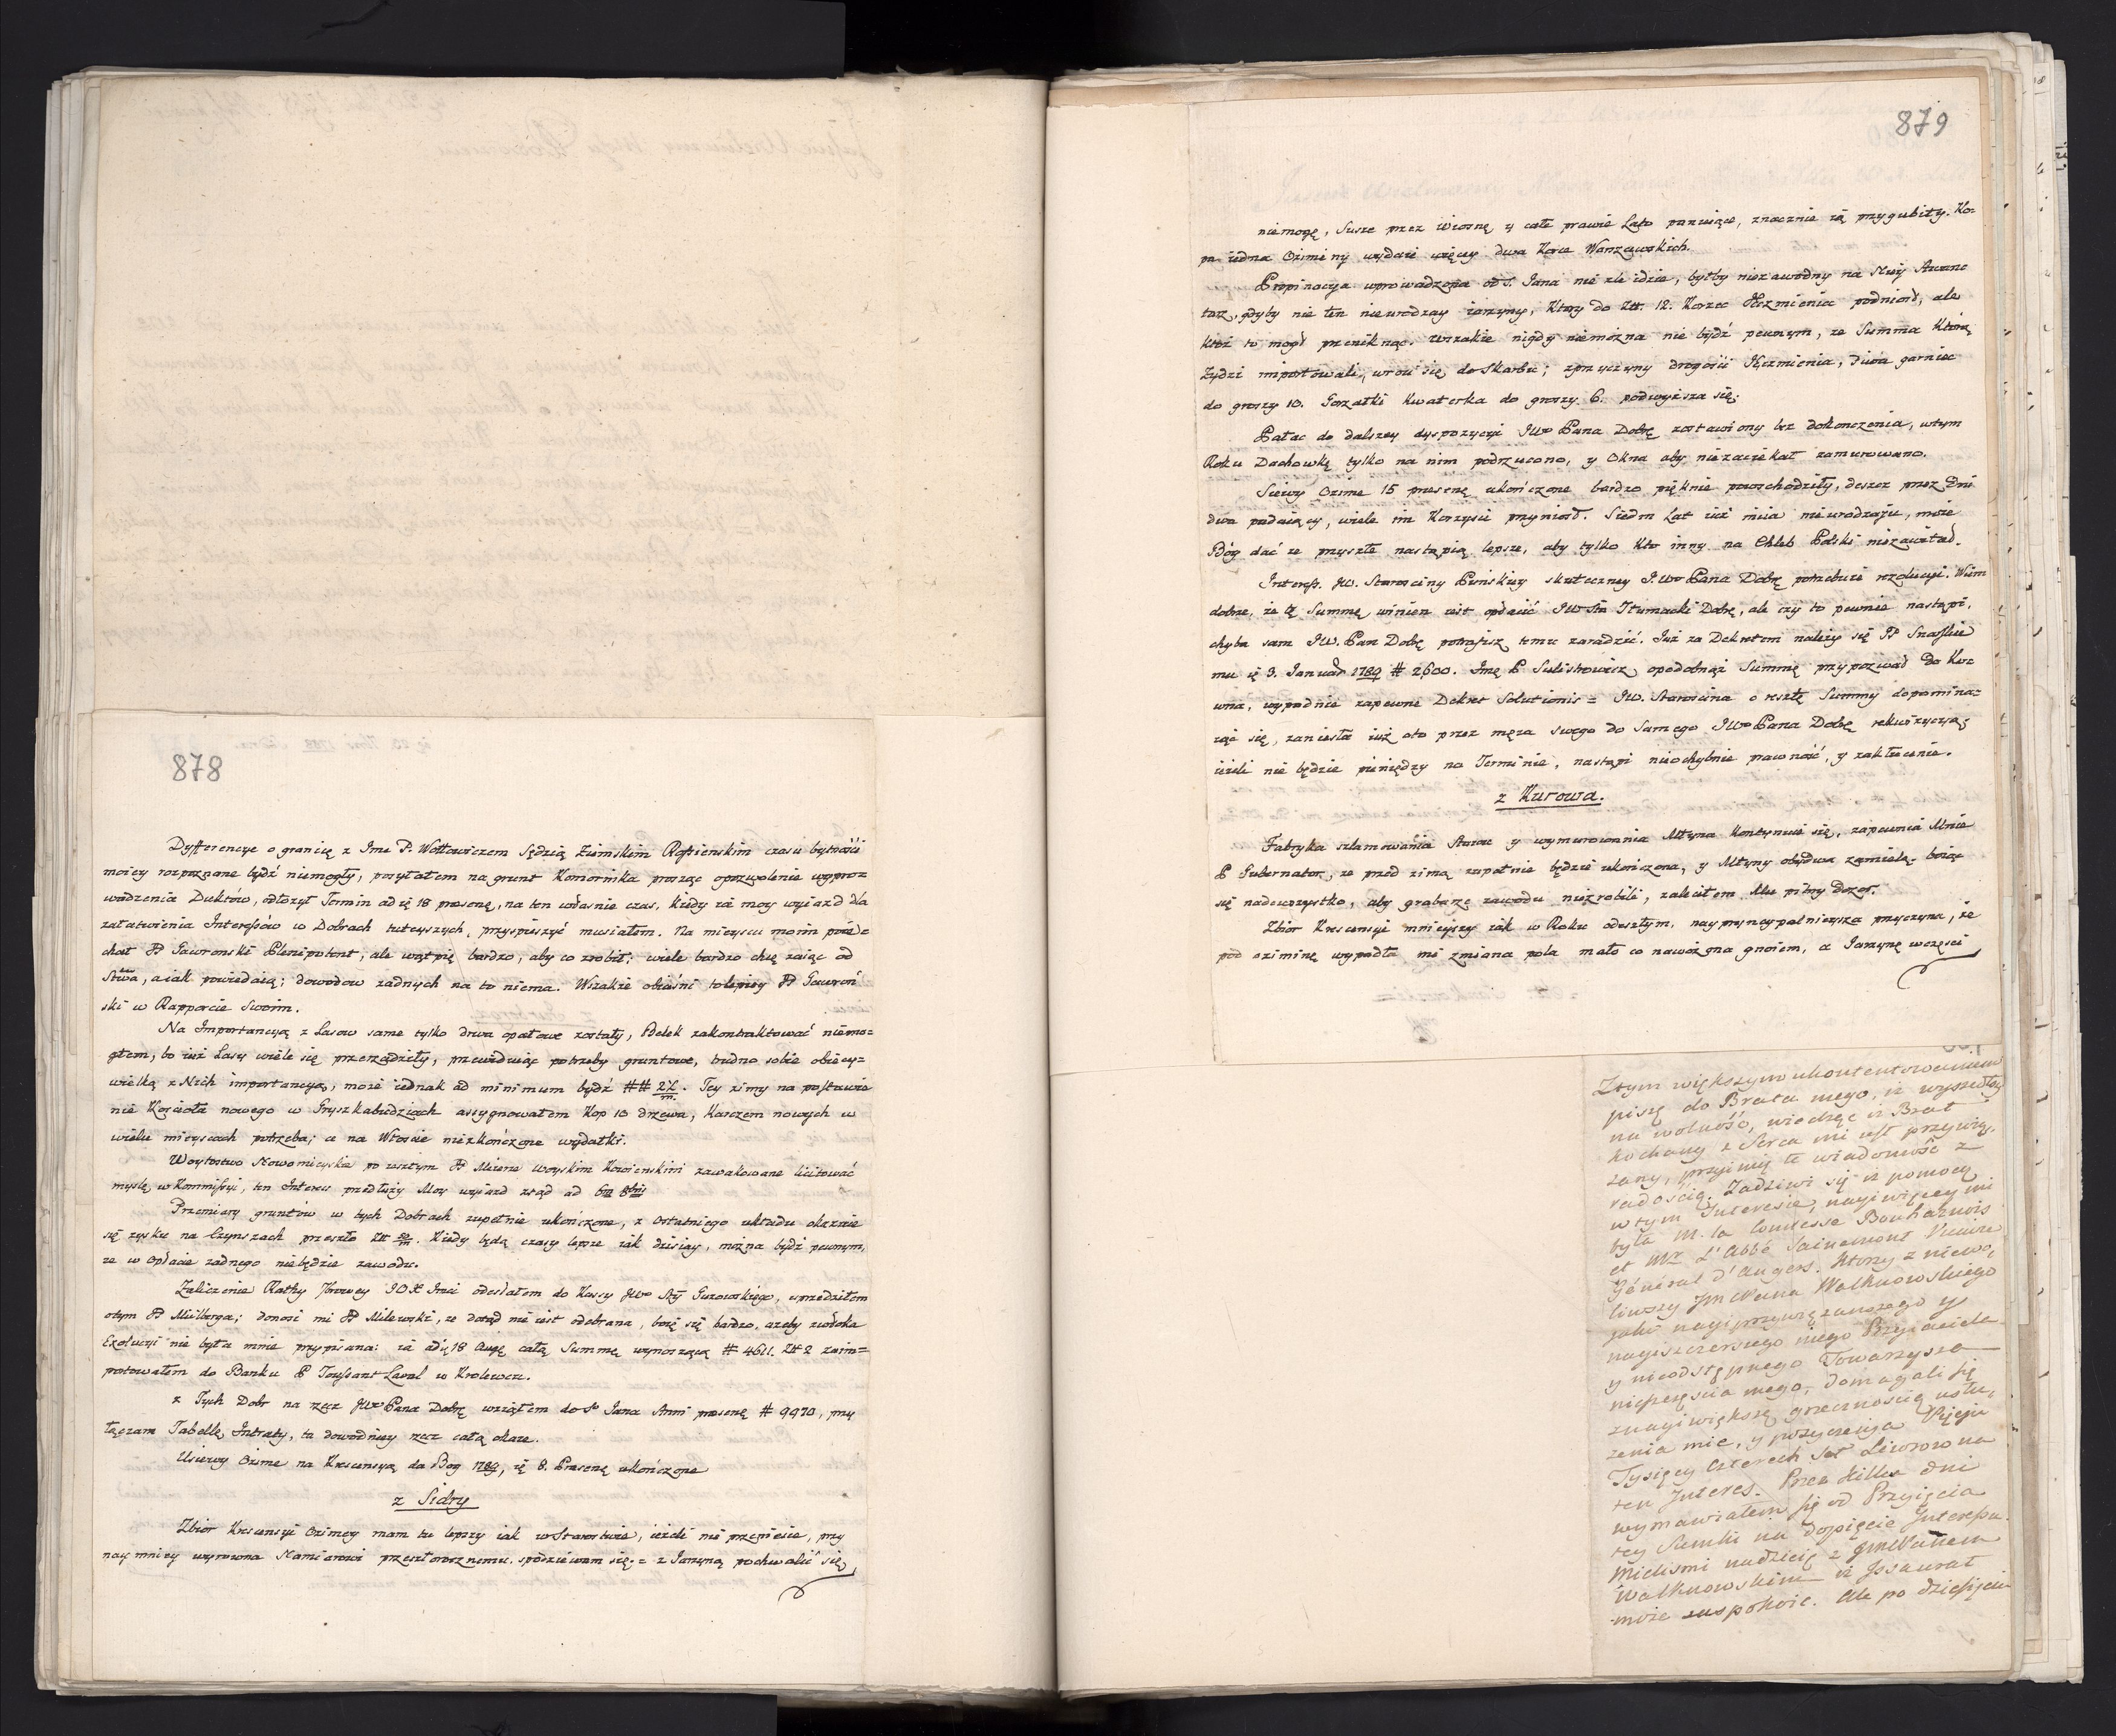 878
Dyfferencye o granicę z Jmc P. Wołłowiczem Sędzią Ziemskim Rossienskim czasu bytności
moiey rozpoznane bydź niemogły, posyłałem na grunt Komornika prosząc o pozwolenie wypro=
wadzenia Duktów, odłożył Termin ad 18 praesentis, na ten własnie czas, kiedy iá moy wyiazd dla
załatwienia Interessów w Dobrach tuteyszych, przyspieszyć musiałem. Na mieyscu moim poié=
chał P Gawronski Plenipotent; ale wątpię bardzo, aby co zrobił; wiele bardzo chcę zaiąc od
Sttwa, a iak powiedaią; dowodow zadnych na to niema. Wszakże obiaśni to lepiey P Gawroń
ski w Rapporcie Swoim.
Na Importancyą z Lasow same tylko drwa opałowe zostały, Belek zakontraktować niemo=
głem, bo iuż Lasy wiéle się przerządziły, przewiduiąc potrzeby gruntowe, trudno sobie obiecy=
wielką z Nich importancyą, może iednak ad minimum bydź ## 2/m. Tey zimy na postawie
nie Kościoła nowego w Gryszkabudziach assygnowałem Kop 10 drzewa, Karczem nowych w
wielu mieyscach potrzeba; a na Włoście niezkończone wydatki.
Woytostwo Nowomieyskie po zeszłym P Mierze woyskim Kowienskim zawakowane licitować
myslę w Kommissyi, ten Interes przedłuży Moy wyiazd ztąd ad 6m 8bris
Przemiary gruntów w tych Dobrach zupełnie ukończone, z ostatniego układu okazuie
się zysku na Czynszach przeszło Zł /m. Kiedy będą czasy lepsze iak dzisiay, można bydź pewnym,
ze w Opłacie zadnego niebędzie zawodu.
Zaliczenie Ratky JO X Jmci odesłałem do Kassy JWo Gurowskiego, uprzedziłem
otym P Milberga; donosi mi P Milewski, ze dotąd nie iest odebrana, boię się bardzo, azeby zwłoka
Exolucyi nie była mnie przypisana: iá 18 Aug całą Summę wynoszącą # 4611. Zł 2 zaim=
portowałem do Banku P Toussant Laval w Krolewcu.
z Tych Dobr na rzecz JWo Pana Dobrę wziąłem do So Jana Anni praesentis # 9970, przy
łączam Tabellę Intraty, ta dowodniey rzecz całą okaze.
Usiewy Ozime na Krescencyą da Bog 1789, 8. Praesentis ukończone
z Sidry
Zbior Krescencyi Ozimey mam tu lepszy iak w Starostwie, ieżeli nie przeniesie, przy
naymniey wyrowna Namiarowi przeszłorocznemu. spodziewam się = z Jarzyną pochwalić się
879
niemogę, Susze przez wiosnę y całe prawie Lato panuiące, znacznie ią przygubiły. Ko=
pa iedna Oziminy wydaie więcey dwa Korce Warszawskich.
Propinacya wprowadzona od S. Jana nie źle idzie, byłby niezawodny na Niey Awan=
taz, gdyby nie ten nieurodzay iarzyny, ktory do Zł. 12. Korzec Jęczmienia podniosł, ale
ktoż to mogł przeniknąc. wszakże nigdy niemożna nie bydź pewnym, ze Summa którą
Żydzi importowali, wroci się do Skarbu; zprzyczyny drogości Jęczmienia, Piwa garniec
do groszy 10. Gorzałki Kwaterka do groszy 6. podwyższa się.
Pałac do dalszey dyspozycyi JWo Pana Dobrę zostawiony bez dokonczenia, wtym
Roku Dachowkę tylko na nim podrzucono, y Okna aby niezaciekał zamurowano.
Siewy Ozime 15 praesentis ukończone bardzo pięknie powschodziły, deszcz przez Dni
dwa padaiący, wiele im Korzyści przyniosł. Siedm Lat iuż miia nieurodzaju, może
Bóg dać ze przyszłe nastąpią lepsze, aby tylko kto inny na Chleb Polski niezawitał.
Interess. JW. Starosciny Puńskiey skuteczney JWo Pana Dobrę potrzebuie rezolucyi. Wiem
dobrze, że tę Summę winien iest opłacić JW Tłumacki Dobrę, ale czy to pewnie nastąpi,
chyba sam JW. Pan Dobę potrafisz temu zaradzić. Już za Dekretem należy się P
mu 3. Januar 1789 # 2600. Jmę P Sulistrowicz o podobnąż Summę przypozwał do Kor
una, wypadnie zapewne Dekret Solutionis = JW. Starościna o resztę Summy dopomina=
iąc się, zaniosła iuż oto przez męża swego do Samego JWo Pana Dobę rekwizycyą;
ieżeli nie będzie pieniędzy na Terminie, nastąpi nieochybnie prawność, y zakłucenie.
z Kurowa.
Fabryka szlamowania Stawu y wymurowania Młyna kontynuie się, zapewnia Mnie
P Gubernator, ze przed zimą zupełnie będzie ukończona, y Młyny obydwa zamielą. boiąc
się nadewszystko, aby grabarze zawodu niezrobili, zaleciłem Mu pilny Dozor.
Zbior Krescencyi mnieyszy iak w Roku odeszłym, naypryncypalnieysza przyczyna, że
pod oziminę wypadła mi zmiana pola mało co nawożona gnoiem, a Jarzynę wczęści
Ztym większym ukontentowaniem
piszę do Brata mego, iż wyszedłszy
na wolność, wiedzęc iż Brat
kochany z Serca mi iest przywią,
zany, przyimię te wiadomość z
radością. Zadziwi się iż pomocą
wtym Interesie, nayiwięcey mi
była M. la Comtesse Bouharnois
et Mr L'Abbé Sainemont Vicaire
Général d'Angers. Ktorzy z niewą,
liwszy Jm Pana Walknowskiego
jako nayiprzywiązanszego y
nayiszczerszego mego Przyiaciela
y nieodstępnego Towarzysza
nieszczęścia mego, domagali się
znayiwiększą grzecznością usłu,
zenia mie, y pożyczenia
Tysięcy czterech set Liworow na
ten Interes. Przez kilka dni
wymawiałem się od Przyięcia
tey Sumki na dopięcie Interessu.
Mielismi nadzieię z JmPanem
Walknowskim iż Jssaurat
może uspokoic. Ale po dziesięciu